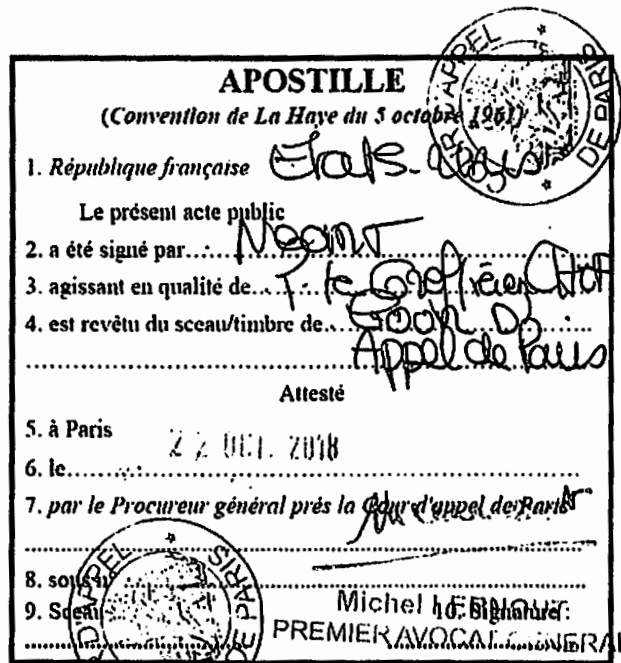 APOSTILLE
(Convention de La Haye du 5 octobre 1961)
1. République française Etats-Unis
Le présent acte public
2. a été signé par.....
3. agissant en qualité de.... P. le Greffier Chef
4. est revêtu du sceau/timbre de...
Appel de Paris
Attesté
5. à Paris
22 OCT. 2018
6. le
7. par le Procureur général près la Cour d'appel de Paris
8. sous n°
9. Sceau 10. Signature :
Michel LERNOUT
PREMIER AVOCAT GENERAL
D'APPEL DE PARIS